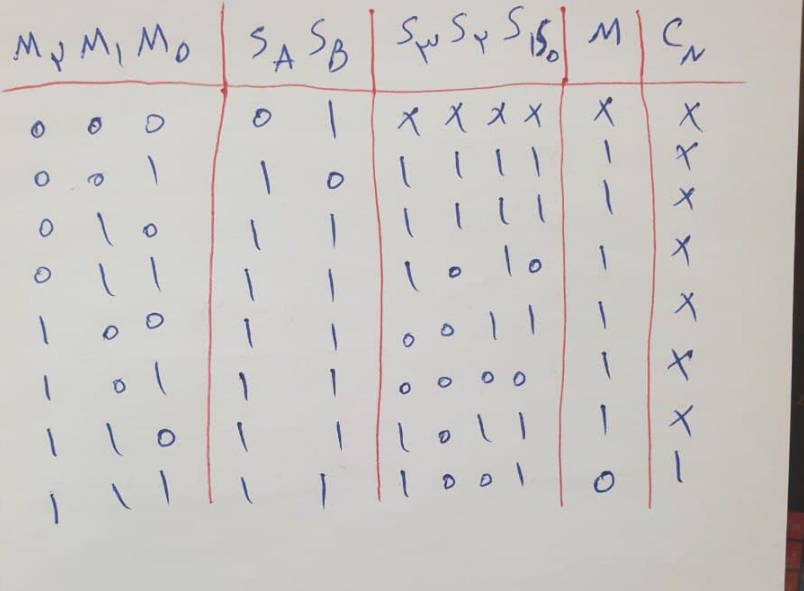 M۲ M1 M0 SA SB S۳ S۲ S1 S0 M CN
0 0 0 0 1 x x x x x x
0 0 1 1 0 1 1 1 1 1 x
0 1 0 1 1 1 1 1 1 1 x
0 1 1 1 1 1 0 1 0 1 x
1 0 0 1 1 0 0 1 1 1 x
1 0 1 1 1 0 0 0 0 1 x
1 1 0 1 1 1 0 1 1 1 x
1 1 1 1 1 1 0 0 1 0 1